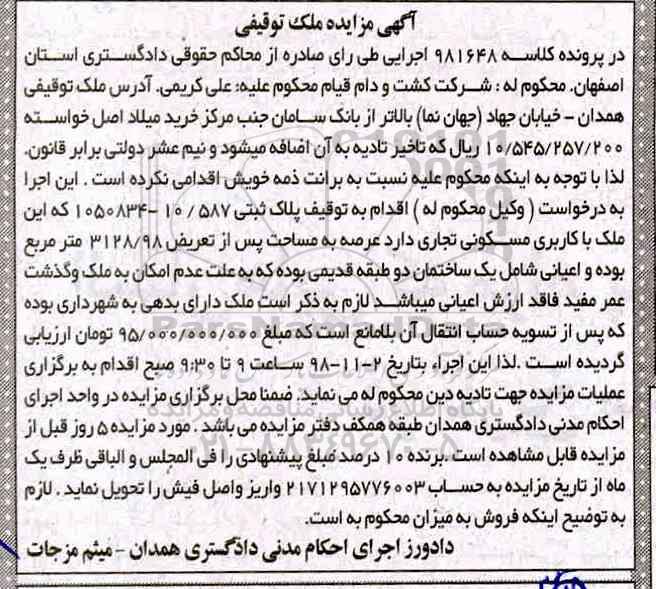 آگهی مزایده ملک توقیفی
در پرونده کلاسه ۹۸۱۶۴۸ اجرایی طی رای صادره از محاکم حقوقی دادگستری استان
اصفهان. محکوم له : شرکت کشت و دام قیام محکوم علیه: علی کریمی. آدرس ملک توقیفی
همدان - خیابان جهاد (جهان نما) بالاتر از بانک سامان جنب مرکز خرید میلاد اصل خواسته
۱۰/۵۴۵/۲۵۷/۲۰۰ ریال که تاخیر تادیه به آن اضافه میشود و نیم عشر دولتی برابر قانون.
لذا با توجه به اینکه محکوم علیه نسبت به برائت ذمه خویش اقدامی نکرده است . این اجرا
به درخواست ( وکیل محکوم له ) اقدام به توقیف پلاک ثبتی ۵۸۷ / ۱۰ -۱۰۵۰۸۳۴ که این
ملک با کاربری مسکونی تجاری دارد عرصه به مساحت پس از تعریض ۳۱۲۸/۹۸ متر مربع
بوده و اعیانی شامل یک ساختمان دو طبقه قدیمی بوده که به علت عدم امکان به ملک وگذشت
عمر مفید فاقد ارزش اعیانی میباشد لازم به ذکر است ملک دارای بدهی به شهرداری بوده
که پس از تسویه حساب انتقال آن بلامانع است که مبلغ ۹۵/۰۰۰/۰۰۰/۰۰۰ تومان ارزیابی
گردیده است .لذا این اجراء بتاریخ ۲-۱۱-۹۸ ساعت ۹ تا ۹:۳۰ صبح اقدام به برگزاری
عملیات مزایده جهت تادیه دین محکوم له می نماید. ضمنا محل برگزاری مزایده در واحد اجرای
احکام مدنی دادگستری همدان طبقه همکف دفتر مزایده می باشد . مورد مزایده ۵ روز قبل از
مزایده قابل مشاهده است .برنده ۱۰ درصد مبلغ پیشنهادی را فی المجلس و الباقی ظرف یک
ماه از تاریخ مزایده به حساب ۲۱۷۱۲۹۵۷۷۶۰۰۳ واریز واصل فیش را تحویل نماید . لازم
به توضیح اینکه فروش به میزان محکوم به است.
دادورز اجرای احکام مدنی دادگستری همدان - میثم مزجات